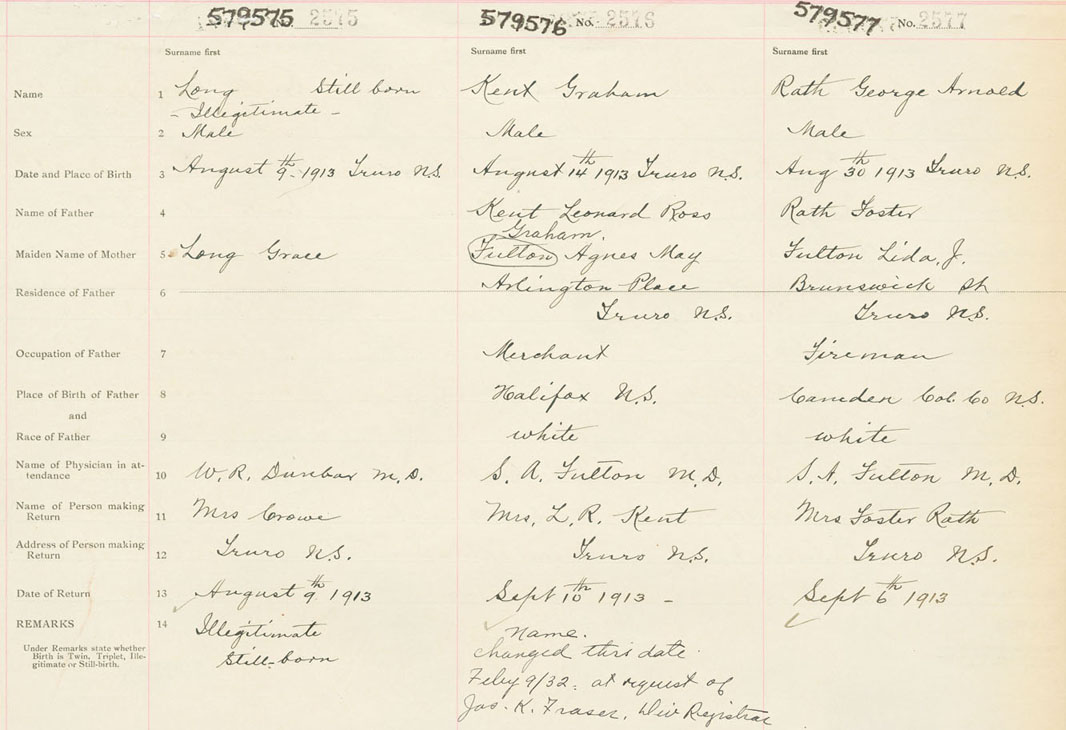 579575 No. 2575 579576 No. 2576 579577 No. 2577
Surname first Surname first Surname first
Name 1 Long Still born Kent Graham Rath George Arnold
- Illegitimate -
Sex 2 Male Male Male
Date and Place of Birth 3 August 9th 1913 Truro N.S. August 14th 1913 Truro N.S. Aug 30th 1913 Truro N.S.
Name of Father 4 Kent Leonard Ross Rath Foster
Graham.
Maiden Name of Mother 5 Long Grace Fulton Agnes May Fulton Lida, J.
Residence of Father 6 Arlington Place Brunswick St
Truro N.S. Truro N.S.
Occupation of Father 7 Merchant Fireman
Place of Birth of Father 8 Halifax N.S. Camden Col. Co N.S.
and
Race of Father 9 white white
Name of Physician in at-
tendance 10 W. R. Dunbar M.D. S. A. Fulton M.D. S. A. Fulton M.D.
Name of Person making
Return 11 Mrs Crowe Mrs. L. R. Kent Mrs Foster Rath
Address of Person making
Return 12 Truro N.S. Truro N.S. Truro N.S.
Date of Return 13 August 9th 1913 Sept 10th 1913 - Sept 6th 1913
REMARKS 14 Illegitimate name.
Under Remarks state whether
Birth is Twin, Triplet, Ille-
gitimate or Still-birth.
Still-born changed this date
Feby 9/32. at request of
Jas. K. Fraser, Div Registrar